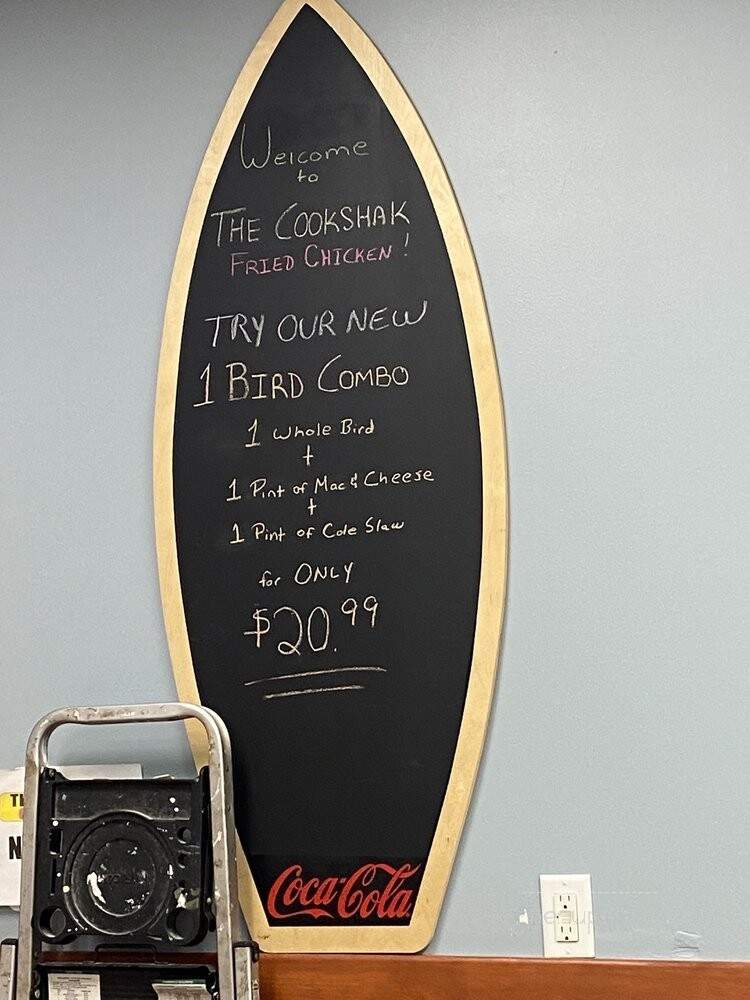 Welcome
to
THE COOKSHAK
FRIED CHICKEN!
TRY OUR NEW
1 BIRD COMBO
1 Whole Bird
+
1 Pint of Mac & Cheese
+
1 Pint of Cole Slaw
for ONLY
$20.99
Coca-Cola